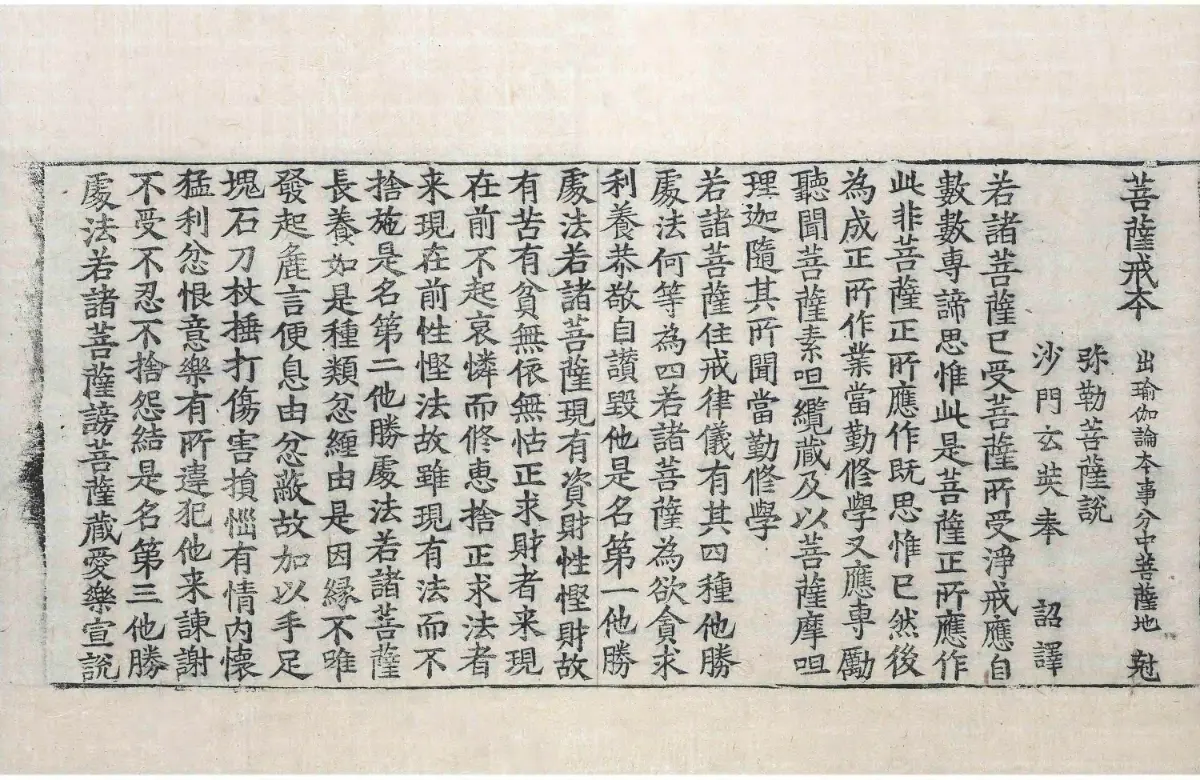 菩薩戒本 出瑜伽論本事分中菩薩地 尅
弥勒菩薩説
沙門玄奘奉 詔譯
若諸菩薩已受菩薩所受淨戒應自
數數專諦思惟此是菩薩正所應作
此非菩薩正所應作既思惟已然後
為成正所作業當勤修學又應專勵
聽聞菩薩素呾纜藏及以菩薩摩呾
理迦隨其所聞當勤修學
若諸菩薩住戒律儀有其四種他勝
處法何等為四若諸菩薩為欲貪求
利養恭敬自讃毀他是名第一他勝
處法若諸菩薩現有資財性慳財故
有苦有貧無依無怙正求財者来現
在前不起哀憐而修恵捨正求法者
来現在前性慳法故雖現有法而不
捨施是名第二他勝處法若諸菩薩
長養如是種類忿纏由是因縁不唯
發起麁言便息由忿蔽故加以手足
塊石刀杖捶打傷害損惱有情内懐
猛利忿恨意樂有所違犯他来諫謝
不受不忍不捨怨結是名第三他勝
處法若諸菩薩謗菩薩藏愛樂宣説